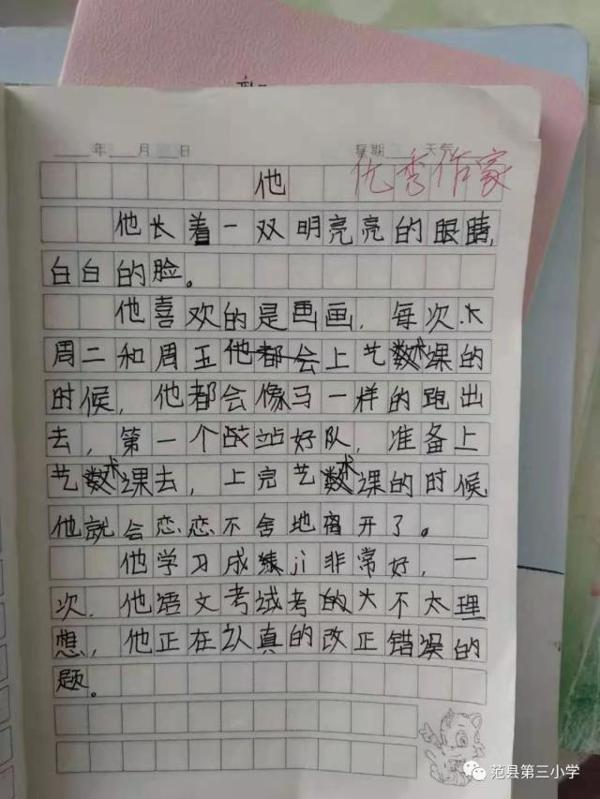 年 月 日 星期 天气
他 优秀作家
他长着一双明亮亮的眼睛,
白白的脸。
他喜欢的是画画,每次
周二和周五他都会上艺术课的
时候,他都会像马一样的跑出
去,第一个战站好队,准备上
艺术课去,上完艺术课的时候
他就会恋恋不舍地离开了。
他学习成绩ji非常好,一
次,他语文考试考的大不太理
想,他正在认真的改正错误的
题。
范县第三小学